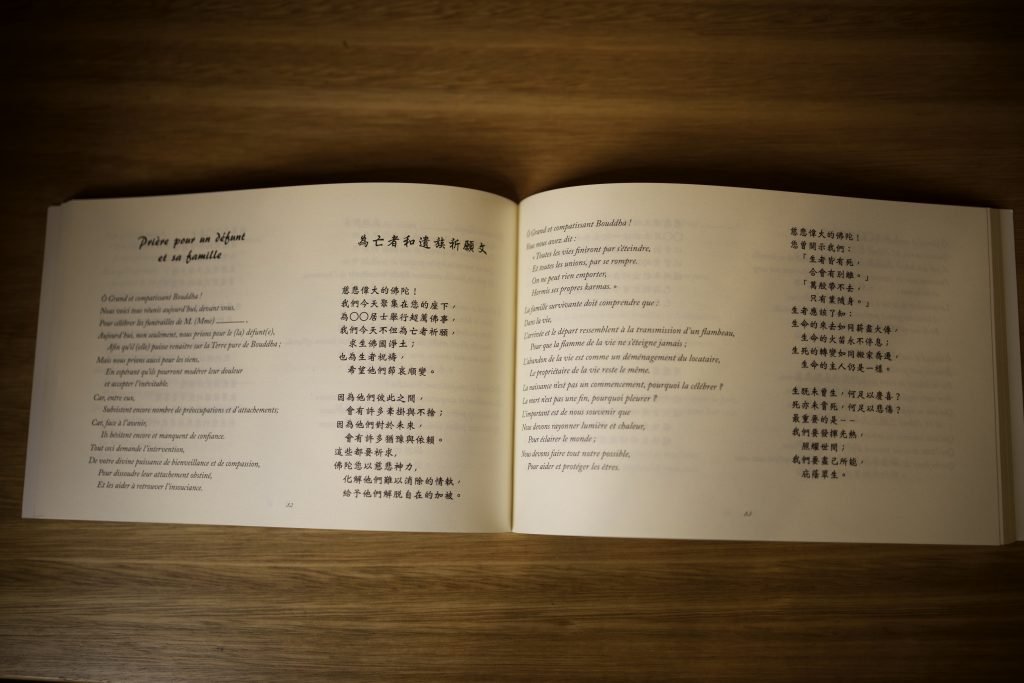 Prière pour un défunt
et sa famille
Ô Grand et compatissant Bouddha !
Nous voici tous réunis aujourd'hui, devant vous,
Pour célébrer les funérailles de M. (Mme) ________ .
Aujourd'hui, non seulement, nous prions pour le (la) défunt(e),
Afin qu'il (elle) puisse renaître sur la Terre pure de Bouddha ;
Mais nous prions aussi pour les siens,
En espérant qu'ils pourront modérer leur douleur
et accepter l'inévitable.
Car, entre eux,
Subsistent encore nombre de préoccupations et d'attachements;
Car, face à l'avenir,
Ils hésitent encore et manquent de confiance.
Tout ceci demande l'intervention,
De votre divine puissance de bienveillance et de compassion,
Pour dissoudre leur attachement obstiné,
Et les aider à retrouver l'insouciance.
為亡者和遺族祈願文
慈悲偉大的佛陀！
我們今天聚集在您的座下，
為○○居士舉行超薦佛事，
我們今天不但為亡者祈願，
求生佛國淨土；
也為生者祝禱，
希望他們節哀順變。
因為他們彼此之間，
會有許多牽掛與不捨；
因為他們對於未來，
會有許多猶豫與依賴。
這些都要祈求，
佛陀您以慈悲神力，
化解他們難以消除的情執，
給予他們解脫自在的加被。
82
Ô Grand et compatissant Bouddha !
Vous nous avez dit :
« Toutes les vies finiront par s'éteindre,
Et toutes les unions, par se rompre.
On ne peut rien emporter,
Hormis ses propres karmas. »
La famille survivante doit comprendre que :
Dans la vie,
L'arrivée et le départ ressemblent à la transmission d'un flambeau,
Pour que la flamme de la vie ne s'éteigne jamais ;
L'abandon de la vie est comme un déménagement du locataire,
Le propriétaire de la vie reste le même.
La naissance n'est pas un commencement, pourquoi la célébrer ?
La mort n'est pas une fin, pourquoi pleurer ?
L'important est de nous souvenir que
Nous devons rayonner lumière et chaleur,
Pour éclairer le monde ;
Nous devons faire tout notre possible,
Pour aider et protéger les êtres.
慈悲偉大的佛陀！
您曾開示我們：
「生者皆有死，
合會有別離。」
「萬般帶不去，
只有業隨身。」
生者應該了知：
生命的來去如同薪盡火傳，
生命的火苗永不停息；
生死的轉變如同搬家喬遷，
生命的主人仍是一樣。
生既未嘗生，何足以慶喜？
死亦未嘗死，何足以悲傷？
最重要的是－－
我們要發揮光熱，
照耀世間；
我們要盡己所能，
庇蔭眾生。
83